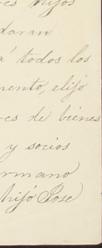 hijos
daran
á todos los
mento, elijó
res de bienes
y socios
ermano
hijó Jose